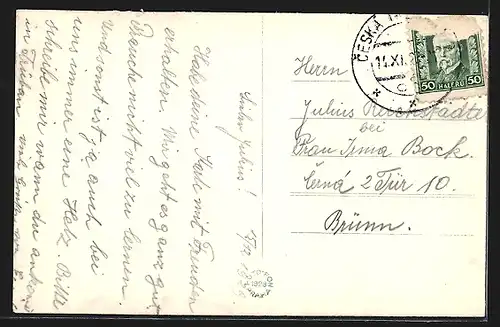 Lieber Julius!
Habe deine Karte mit Freuden
erhalten. Mir geht es ganz gut,
Brauche nicht viel zu lernen.
Und sonst ist ja auch bei
uns immer eine Hetz. Bitte
schreibe mir wann du
in
ČESKÁ
14.XI.
50 HALÉŘŮ 50
Herrn
Julius Reichstädter
bei
Frau Irma Bock.
Černá 2 Tür 10.
Brünn.